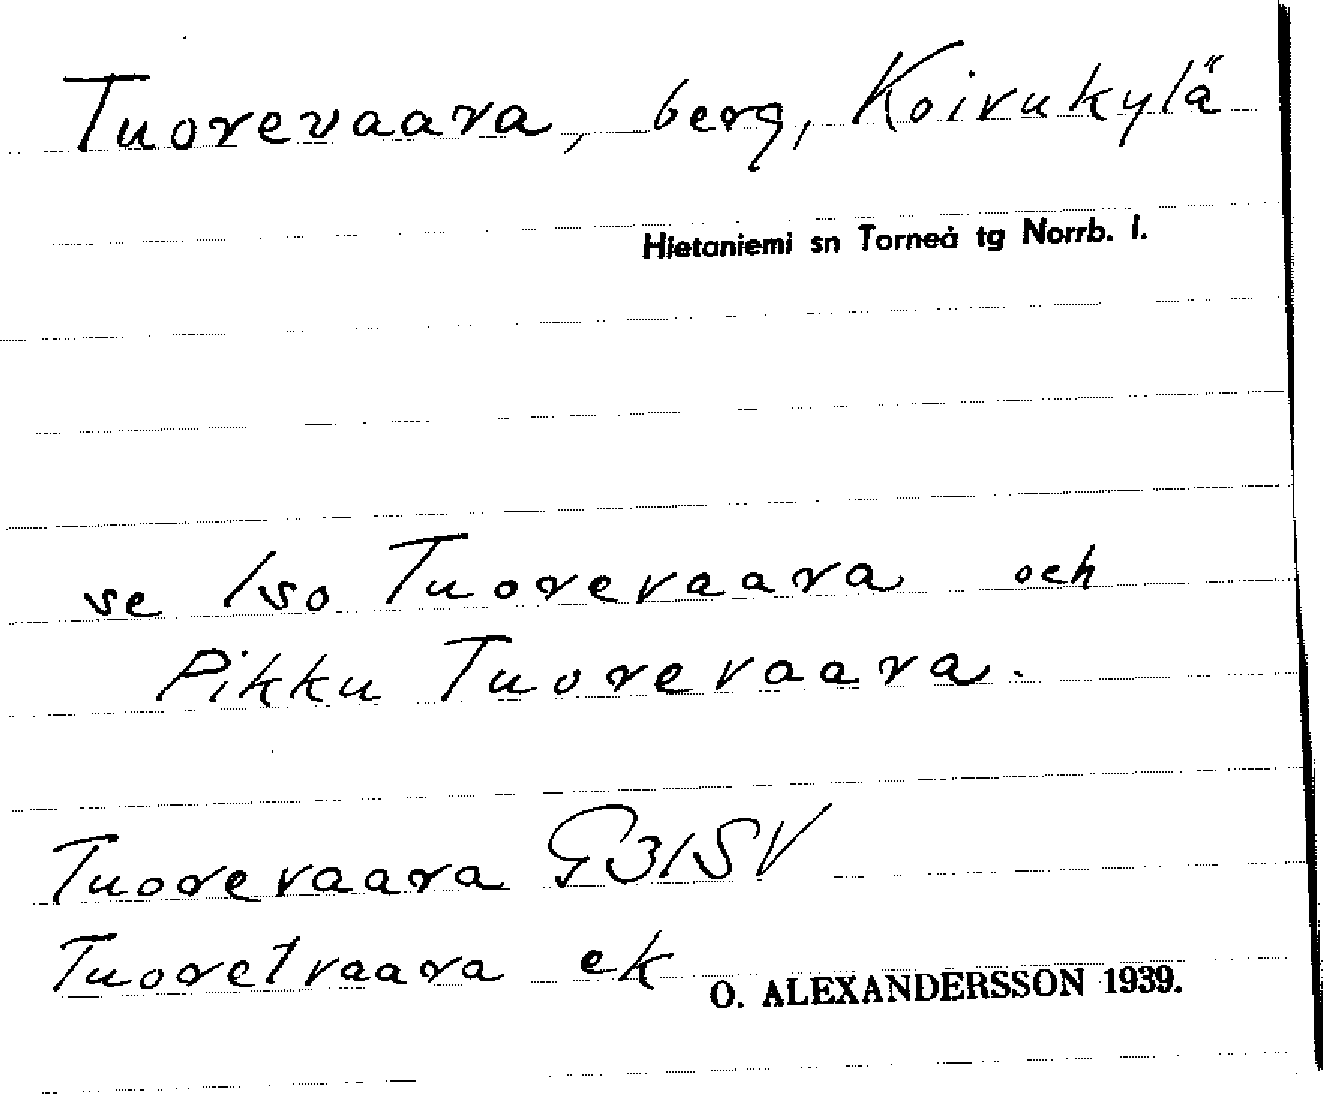 Tuorevaara, berg, Koivukylä
Hietaniemi sn Torneå tg Norrb. l.
se Iso Tuorevaara och
Pikku Tuorevaara.
Tuorevaara G31SV
Tuoretvaara ek
O. ALEXANDERSSON 1939.